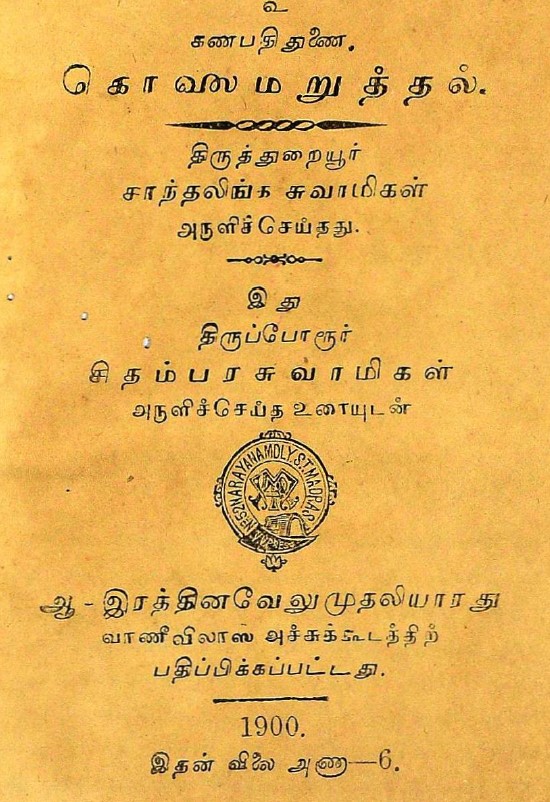 உ
கணபதிதுணை.
கொலைமறுத்தல்.
திருத்துறையூர்
சாந்தலிங்க சுவாமிகள்
அருளிச்செய்தது.
இது
திருப்போரூர்
சிதம்பரசுவாமிகள்
அருளிச்செய்த உரையுடன்
No 52 NARAYANA MDLY ST. MADRAS
V.V.PRESS
ஆ - இரத்தினவேலுமுதலியாரது
வாணீவிலாஸ அச்சுக்கூடத்திற்
பதிப்பிக்கப்பட்டது.
1900.
இதன் விலை அணா—6.